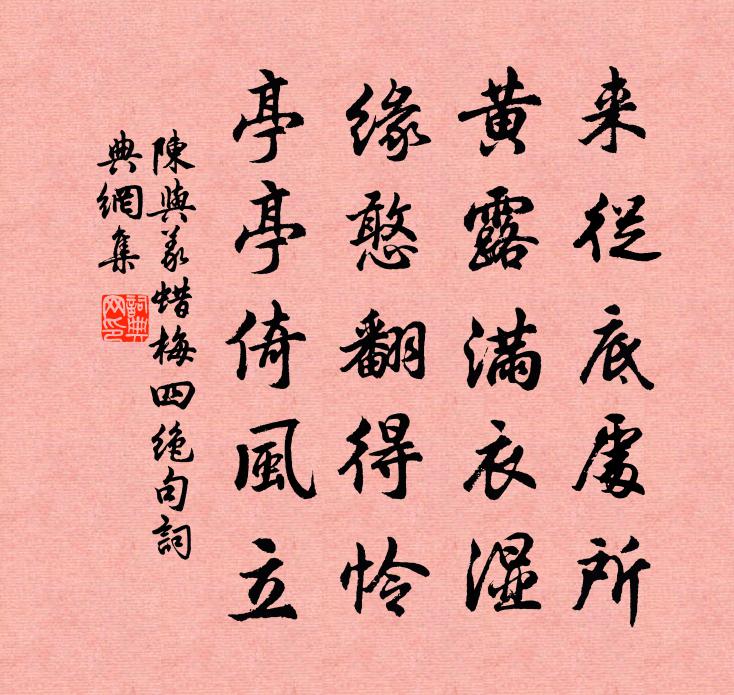 来從底處所
黃露滿衣濕
緣憨翻得怜
亭亭倚風立
陳與義蜡梅四絶句詞
典網集
詞典
网印